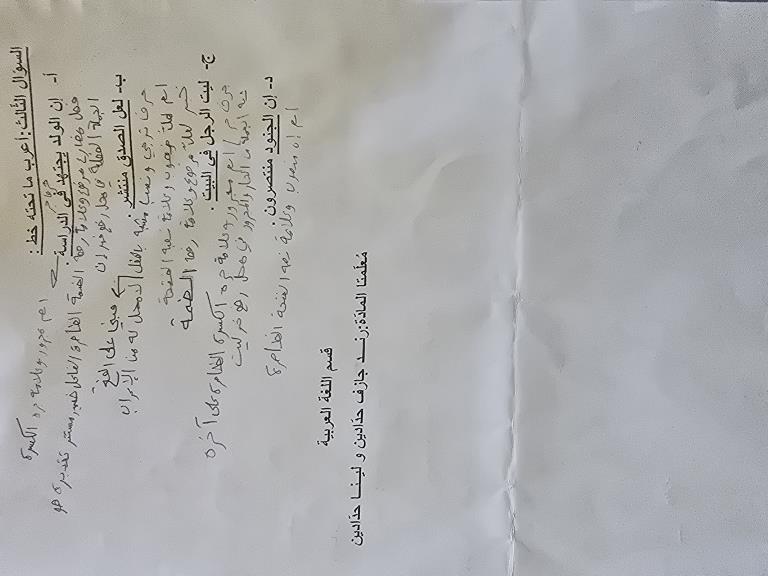 السؤال الثالث: أعرب ما تحته خط :
حرف جر
اسم مجرور وعلامة جره الكسرة
أ- إن الولد يجتهد في الدراسة .
فعل مضارع مرفوع وعلامة رفعه الضمة الظاهرة الفاعل ضمير مستتر تقديره هو
الجملة الفعلية في محل رفع خبر إن
ب- لعل الصدق منتشر .
مبني على الفتح
حرف ترجي ونصب مشبه بالفعل لا محل له من الإعراب
اسم لعل منصوب وعلامة نصبه الفتحة
خبر لعل مرفوع وعلامة رفعه الضمة
ج- ليت الرجل في البيت .
حرف جر / اسم مجرور وعلامة جره الكسرة الظاهرة على آخره
شبه الجملة من الجار والمجرور في محل رفع خبر ليت
د- إن الجنود منتصرون .
اسم إن منصوب وعلامة نصبه الفتحة الظاهرة
قسم اللغة العربية
مُعلّمتا المادّة: رنـد جازف حدّادين و لينـا حدّادين